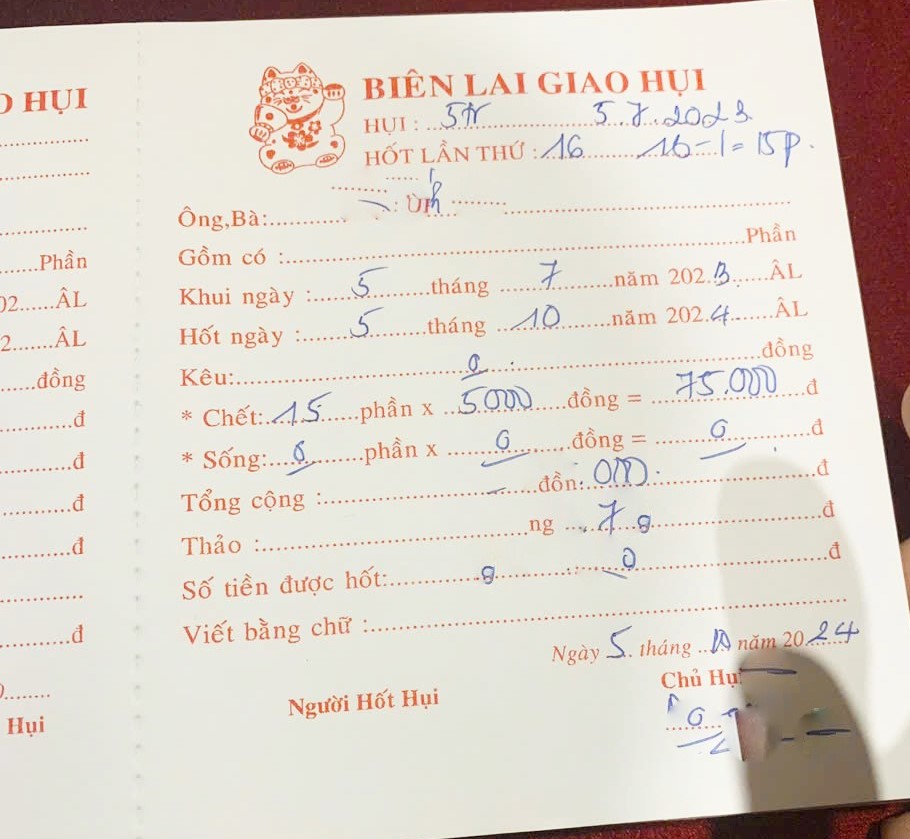 HỤI
Phần
02......ÂL
2.......ÂL
đồng
đ
đ
đ
đ
đ
Hụi
BIÊN LAI GIAO HỤI
HỤI : 5tr 5.7.2023
HỐT LẦN THỨ : 16 16-1=15p.
Ông,Bà:
Gồm có : Phần
Khui ngày : 5 tháng 7 năm 202.3 ÂL
Hốt ngày : 5 tháng 10 năm 202.4 ÂL
Kêu: đồng
* Chết: 15 phần x 5000 đồng = 75.000 đ
* Sống: 0 phần x 0 đồng = 0 đ
Tổng cộng : đ
Thảo : đ
Số tiền được hốt: đ
Viết bằng chữ :
Ngày 5 tháng 10 năm 2024
Người Hốt Hụi
Chủ Hụi